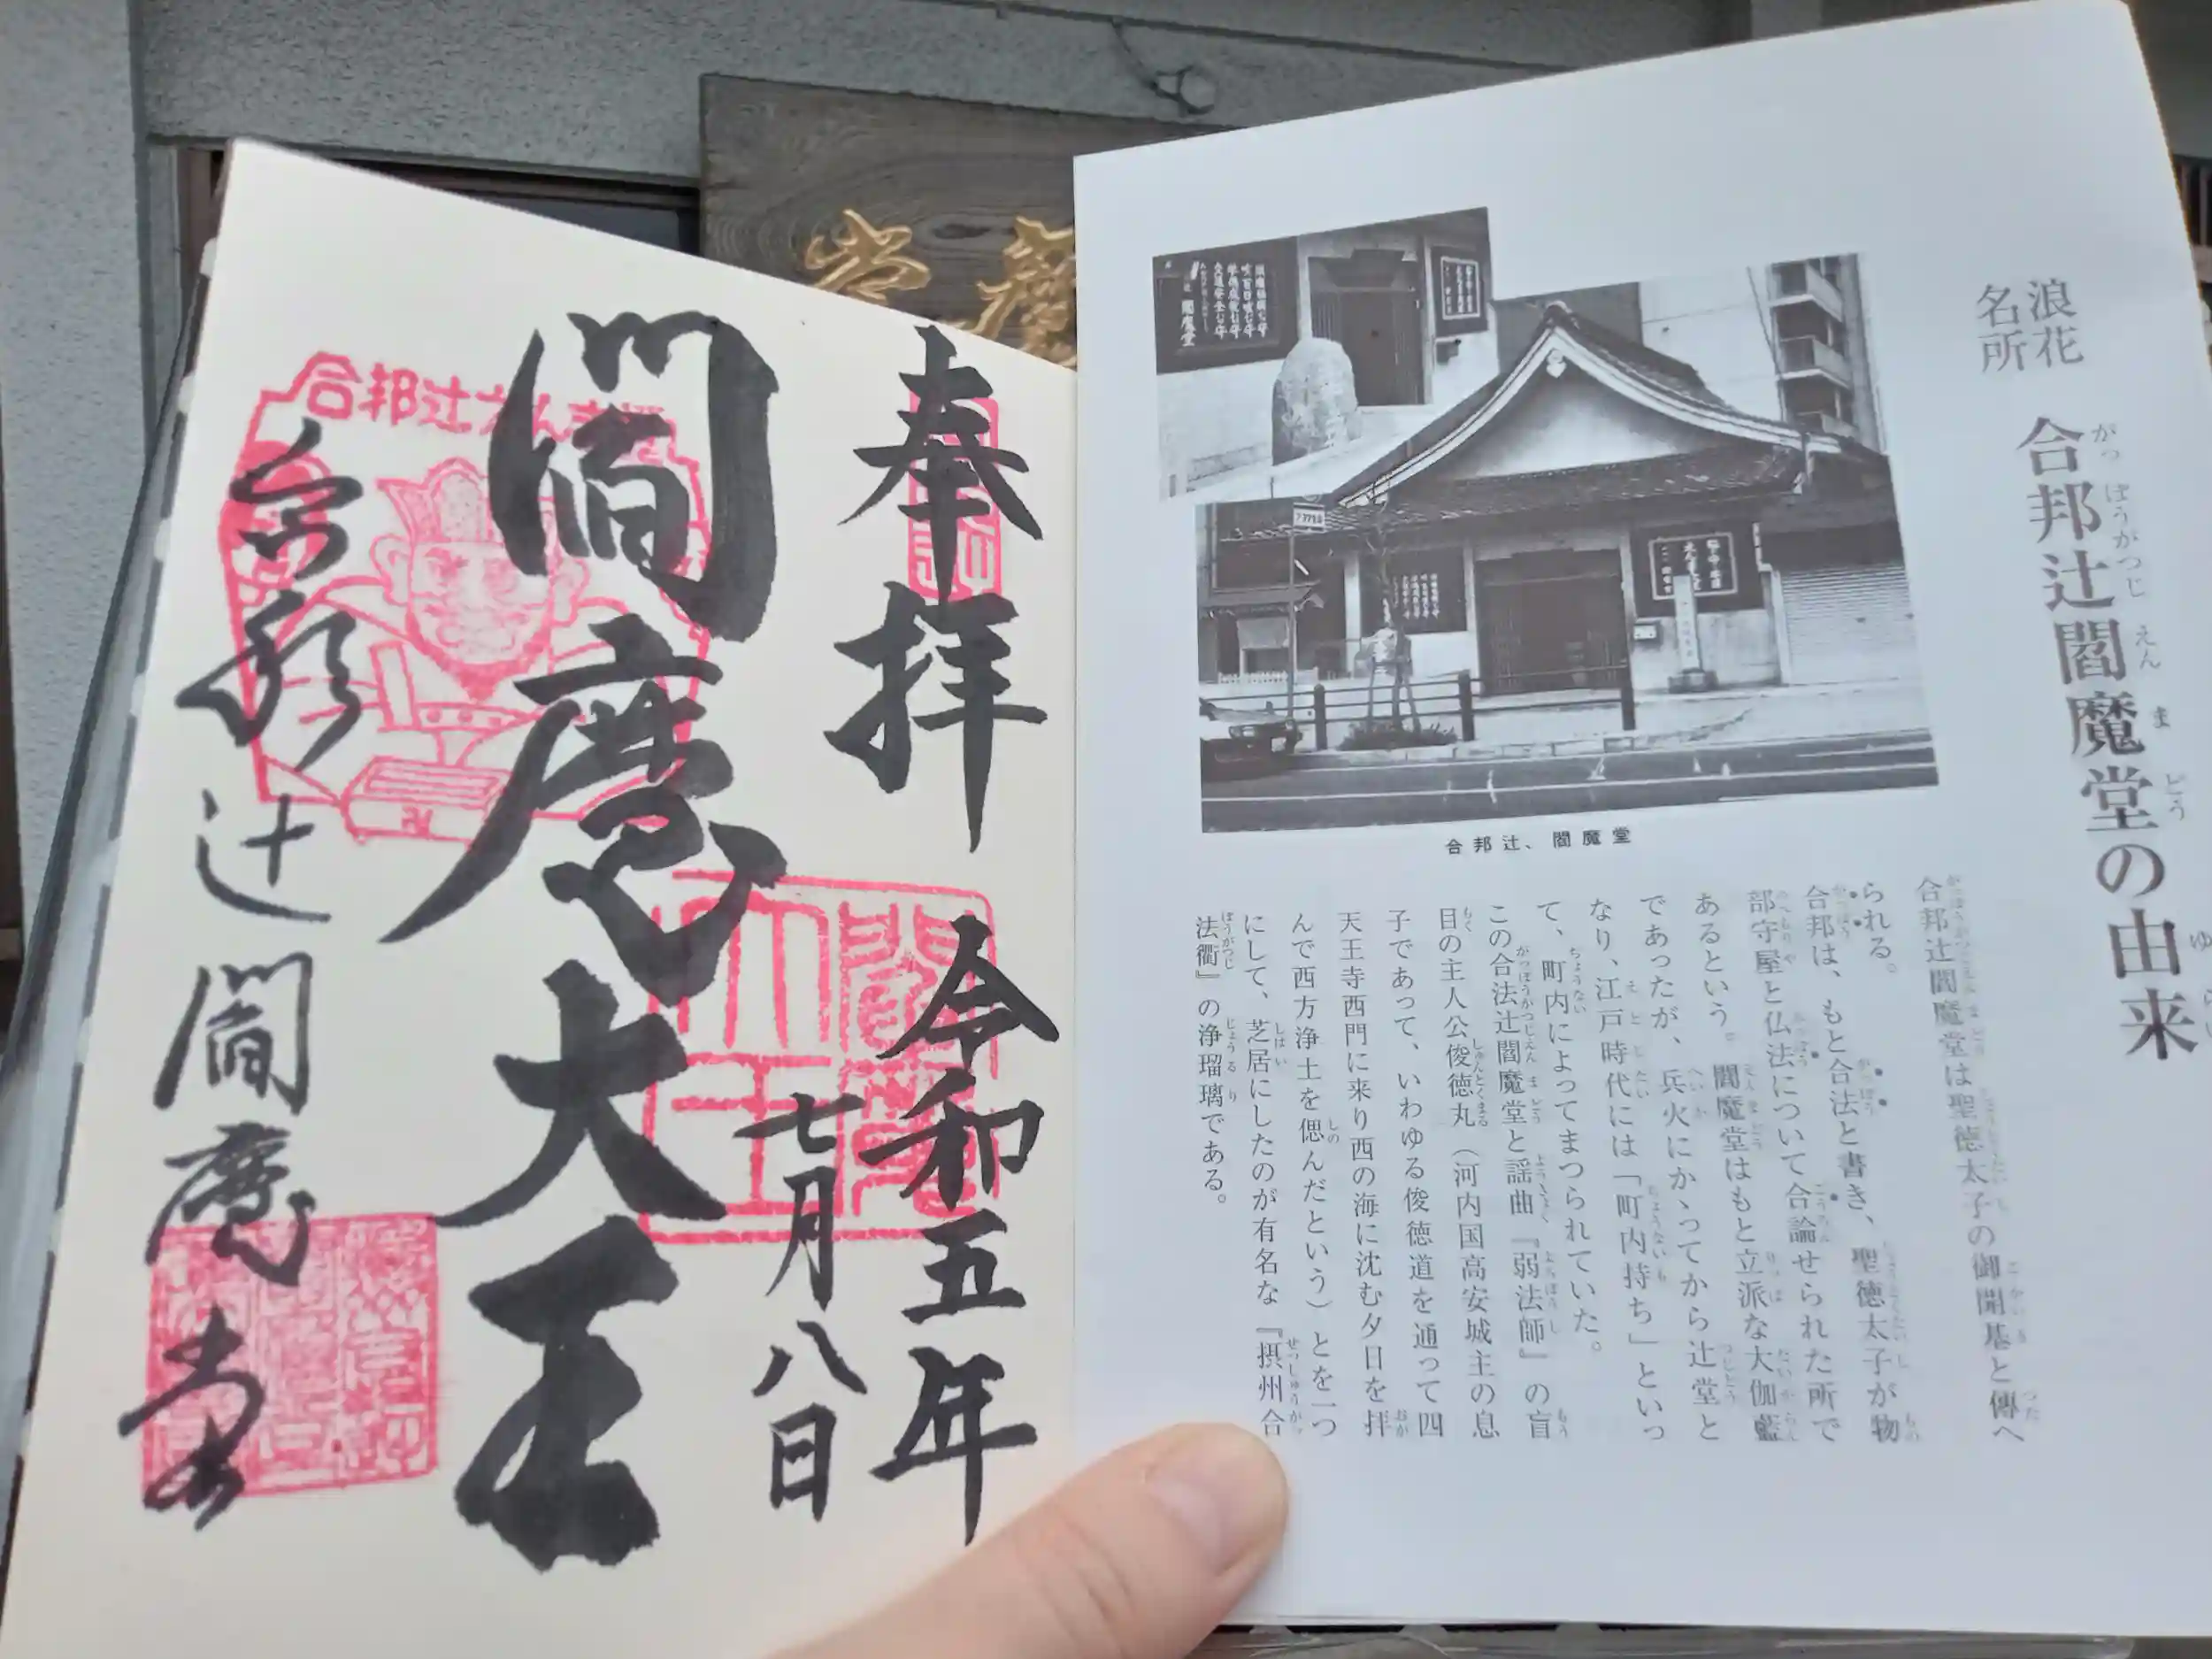 浪花
名所
合邦辻閻魔堂の由来
がっぽうがつじえんまどうゆらい
合邦辻、閻魔堂
合邦辻閻魔堂は聖徳太子の御開基と傳へ
られる。
合邦は、もと合法と書き、聖徳太子が物
部守屋と仏法について合論せられた所で
あるという。閻魔堂はもと立派な大伽藍
であったが、兵火にかゝってから辻堂と
なり、江戸時代には「町内持ち」といっ
て、町内によってまつられていた。
この合法辻閻魔堂と謡曲『弱法師』の盲
目の主人公俊徳丸（河内国高安城主の息
子であって、いわゆる俊徳道を通って四
天王寺西門に来り西の海に沈む夕日を拝
んで西方浄土を偲んだという）とを一つ
にして、芝居にしたのが有名な『摂州合
法衢』の浄瑠璃である。
奉拝
令和五年
七月八日
閻魔大王
合邦辻閻魔堂
合邦辻えんま